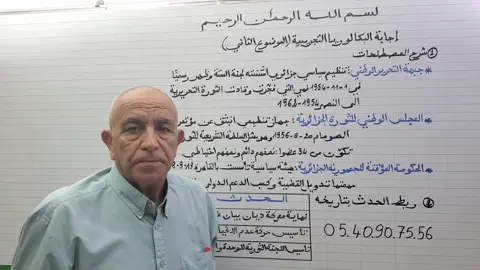 بسم الله الرحمان الرحيم
إجابة البكالوريا التجريبية (الموضوع الثاني)
① شرح المصطلحات
* جبهة التحرير الوطني: تنظيم سياسي جزائري أسسته لجنة الستة وظهر رسميًا
1954-11-01 فهي التي فجّرت وقادت الثورة التحريرية
الى النصر 1954-1962
* المجلس الوطني للثورة الجزائرية: جهاز تنظيمي انبثق عن مؤتمر
الصومام 20-8-1956 وهو يمثل السلطة التشريعية للثورة
تكوّن من 34 عضوا: نصفهم دائم ونصفهم احتياطي
* الحكومة المؤقتة للجمهورية الجزائرية: هيئة سياسية تأسست بالقاهرة
مهمتها تدويل القضية وكسب الدعم الدولي
② ربط الحدث بتاريخه
الحدث
نهاية معركة ديان بيان
تأسيس حركة عدم
تأسيس اللجنة الثورية للوحدة
05.40.90.75.56